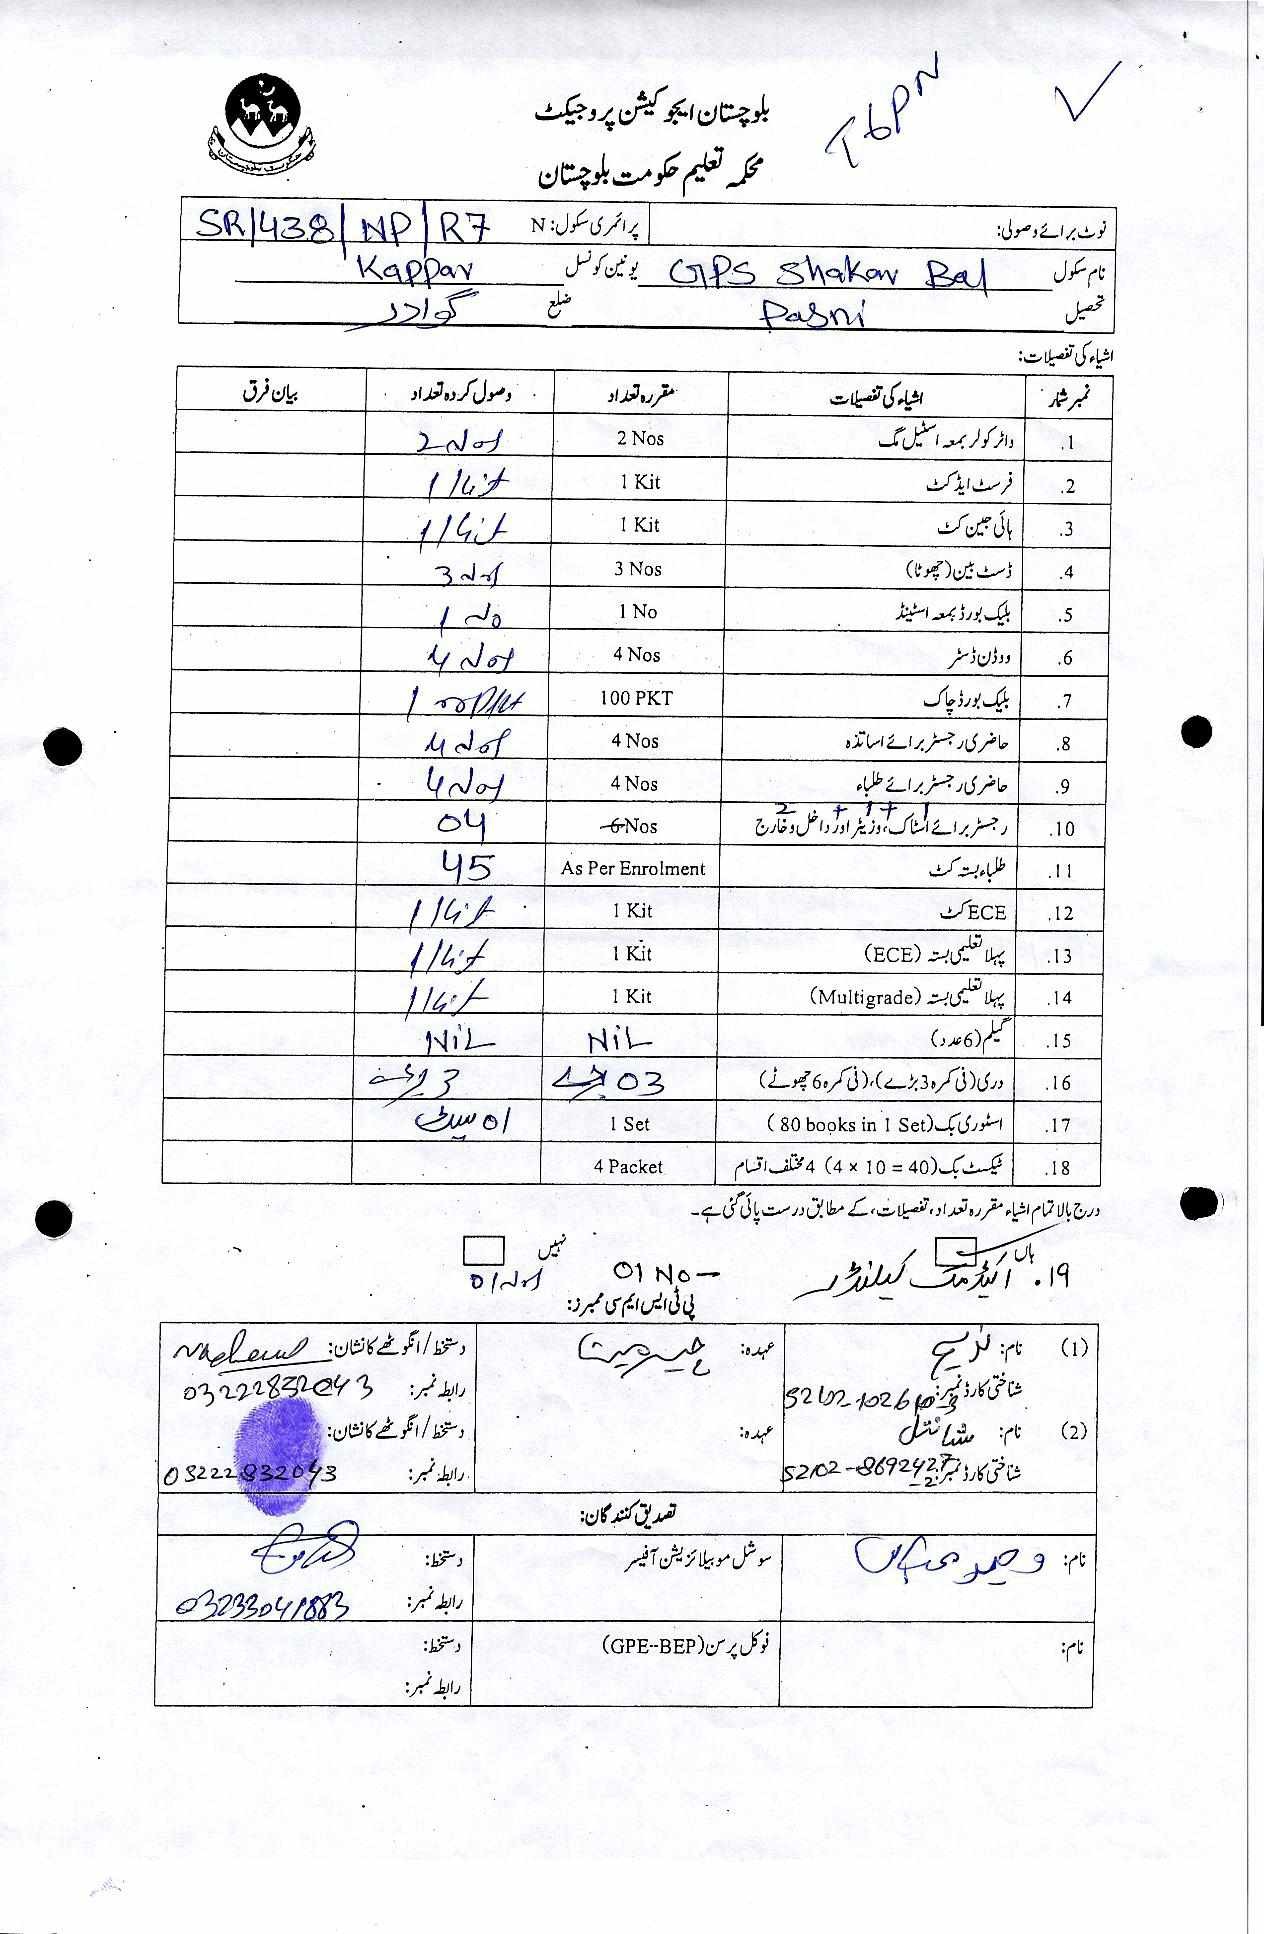 بلوچستان ایجوکیشن پروجیکٹ
محکمہ تعلیم حکومت بلوچستان
نوٹ برائے وصولی: پرائمری سکول: N SR/438/NP/R7
نام سکول GPS Shakar Bal یونین کونسل Kappar
تحصیل Pasni ضلع گوادر
اشیاء کی تفصیلات:
نمبر شمار اشیاء کی تفصیلات مقررہ تعداد وصول کردہ تعداد بیان فرق
1. واٹر کولر بمعہ اسٹیل مگ 2 Nos 2 Nos
2. فرسٹ ایڈ کٹ 1 Kit 1 Kit
3. ہائی جین کٹ 1 Kit 1 Kit
4. ڈسٹ بین (چھوٹا) 3 Nos 3 Nos
5. بلیک بورڈ بمعہ اسٹینڈ 1 No 1 No
6. ووڈن ڈسٹر 4 Nos 4 Nos
7. بلیک بورڈ چاک 100 PKT 100 Pkt
8. حاضری رجسٹر برائے اساتذہ 4 Nos 4 Nos
9. حاضری رجسٹر برائے طلباء 4 Nos 4 Nos
2 + 1 + 1
10. رجسٹر برائے اسٹاک، وزیٹر اور داخل و خارج 6 Nos 04
11. طلباء بستہ کٹ As Per Enrolment 45
12. ECE کٹ 1 Kit 1 Kit
13. پہلا تعلیمی بستہ (ECE) 1 Kit 1 Kit
14. پہلا تعلیمی بستہ (Multigrade) 1 Kit 1 Kit
15. گیم (6 عدد) NiL NiL
16. دری (فی کمرہ 3 بڑے)، (فی کمرہ 6 چھوٹے) 03 بڑے 3
17. اسٹوری بک (80 books in 1 Set) 1 Set 01 سیٹ
18. ٹیکسٹ بک (4 × 10 = 40) 4 مختلف اقسام 4 Packet
درج بالا تمام اشیاء مقررہ تعداد، تفصیلات، کے مطابق درست پائی گئی ہے۔
ہاں نہیں
۱۹. اکیڈمک کیلنڈر 01 No - 01 Nos
پی ٹی ایس ایم سی ممبرز:
(1) نام: عہدہ: چیئرمین دستخط / انگوٹھے کا نشان:
شناختی کارڈ نمبر: رابطہ نمبر: 03222832043
(2) نام: عہدہ: دستخط / انگوٹھے کا نشان:
شناختی کارڈ نمبر: 52102-8692427-2 رابطہ نمبر: 03222832043
تصدیق کنندگان:
نام: سوشل موبیلائزیشن آفیسر دستخط:
رابطہ نمبر: 03233041883
نام: فوکل پرسن (GPE--BEP) دستخط:
رابطہ نمبر: